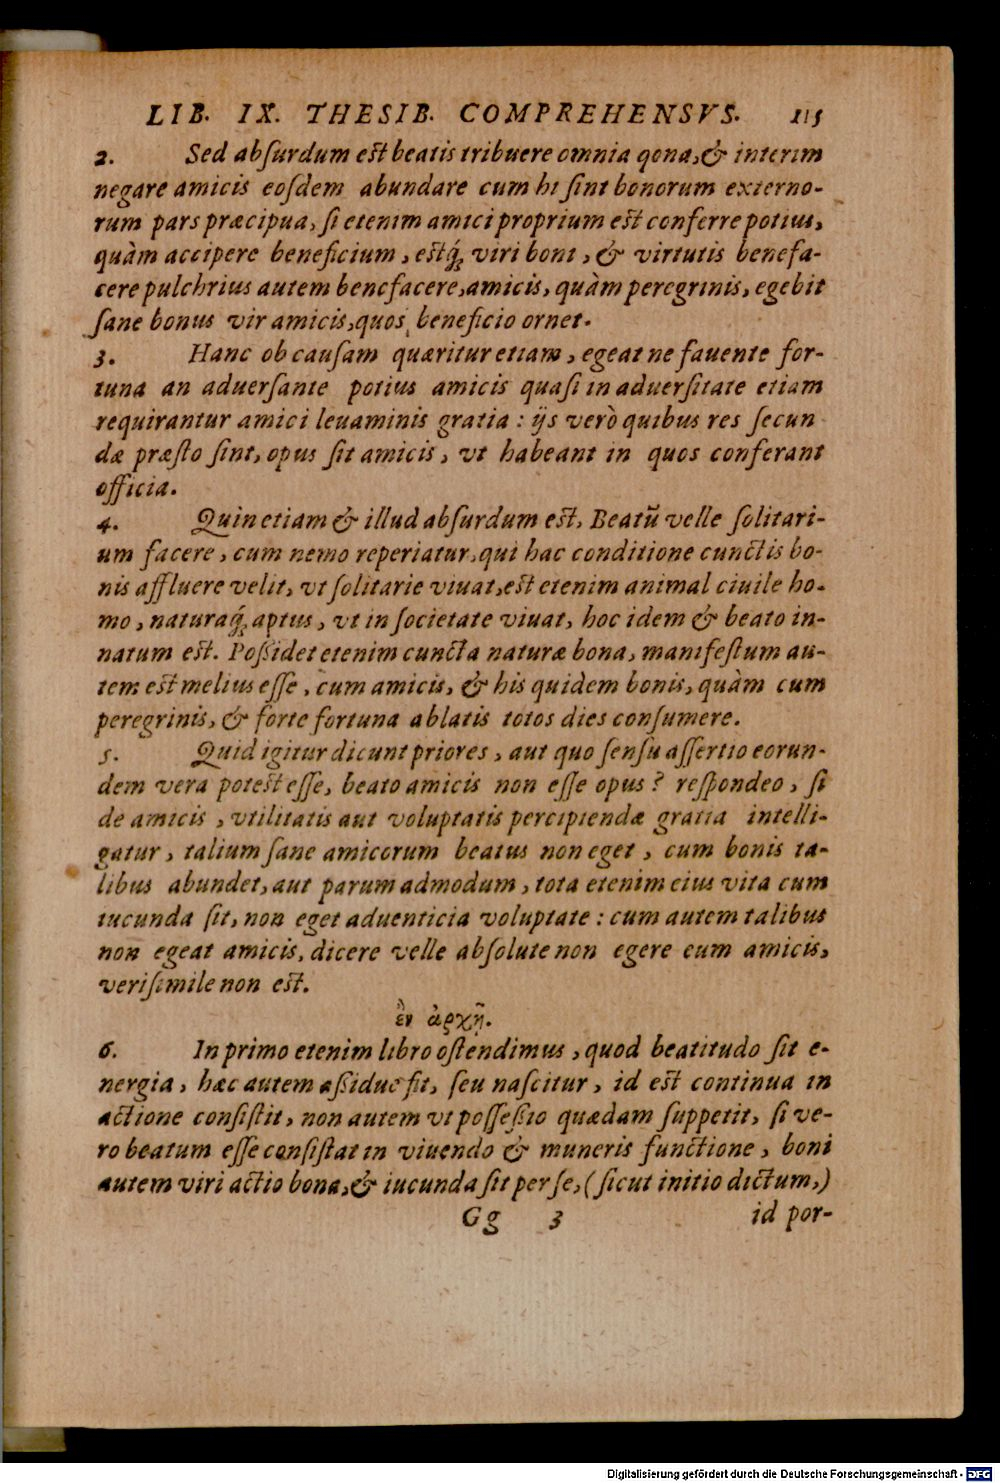 LIB. IX. THESIB. COMPREHENSVS. 115
2. Sed abſurdum eſt beatis tribuere omnia qona,& interim
negare amicis eoſdem abundare cum hi ſint bonorum externo-
rum pars præcipua, ſi etenim amici proprium eſt conferre potius,
quàm accipere beneficium, eſtq́; viri boni, & virtutis benefa-
cere pulchrius autem benefacere,amicis, quàm peregrinis, egebit
ſane bonus vir amicis,quos beneficio ornet.
3. Hanc ob cauſam quæritur etiam, egeat ne fauente for-
tuna an aduerſante potius amicis quaſi in aduerſitate etiam
requirantur amici leuaminis gratia: ijs verò quibus res ſecun
dæ præſto ſint, opus ſit amicis, vt habeant in quos conferant
officia.
4. Quin etiam & illud abſurdum eſt, Beatũ velle ſolitari-
um facere, cum nemo reperiatur,qui hac conditione cunctis bo-
nis affluere velit, vt ſolitarie viuat,eſt etenim animal ciuile ho-
mo, naturaq́; aptus, vt in ſocietate viuat, hoc idem & beato in-
natum eſt. Poßidet etenim cuncta naturæ bona, manifeſtum au-
tem eſt melius eſſe, cum amicis, & his quidem bonis, quàm cum
peregrinis, & forte fortuna ablatis totos dies conſumere.
5. Quid igitur dicunt priores, aut quo ſenſu aſſertio eorun-
dem vera poteſt eſſe, beato amicis non eſſe opus? reſpondeo, ſi
de amicis, vtilitatis aut voluptatis percipiendæ gratia intelli-
gatur, talium ſane amicorum beatus non eget, cum bonis ta-
libus abundet, aut parum admodum, tota etenim eius vita cum
iucunda ſit, non eget aduenticia voluptate: cum autem talibus
non egeat amicis, dicere velle abſolute non egere eum amicis,
veriſimile non eſt.
ἐν ἀρχῇ.
6. In primo etenim libro oſtendimus, quod beatitudo ſit e-
nergia, hæc autem aßidue fit, ſeu naſcitur, id eſt continua in
actione conſiſtit, non autem vt poſſeßio quædam ſuppetit, ſi ve-
ro beatum eſſe conſiſtat in viuendo & muneris functione, boni
autem viri actio bona,& iucunda ſit per ſe, (ſicut initio dictum,)
Gg 3 id por-
Digitalisierung gefördert durch die Deutsche Forschungsgemeinschaft - DFG